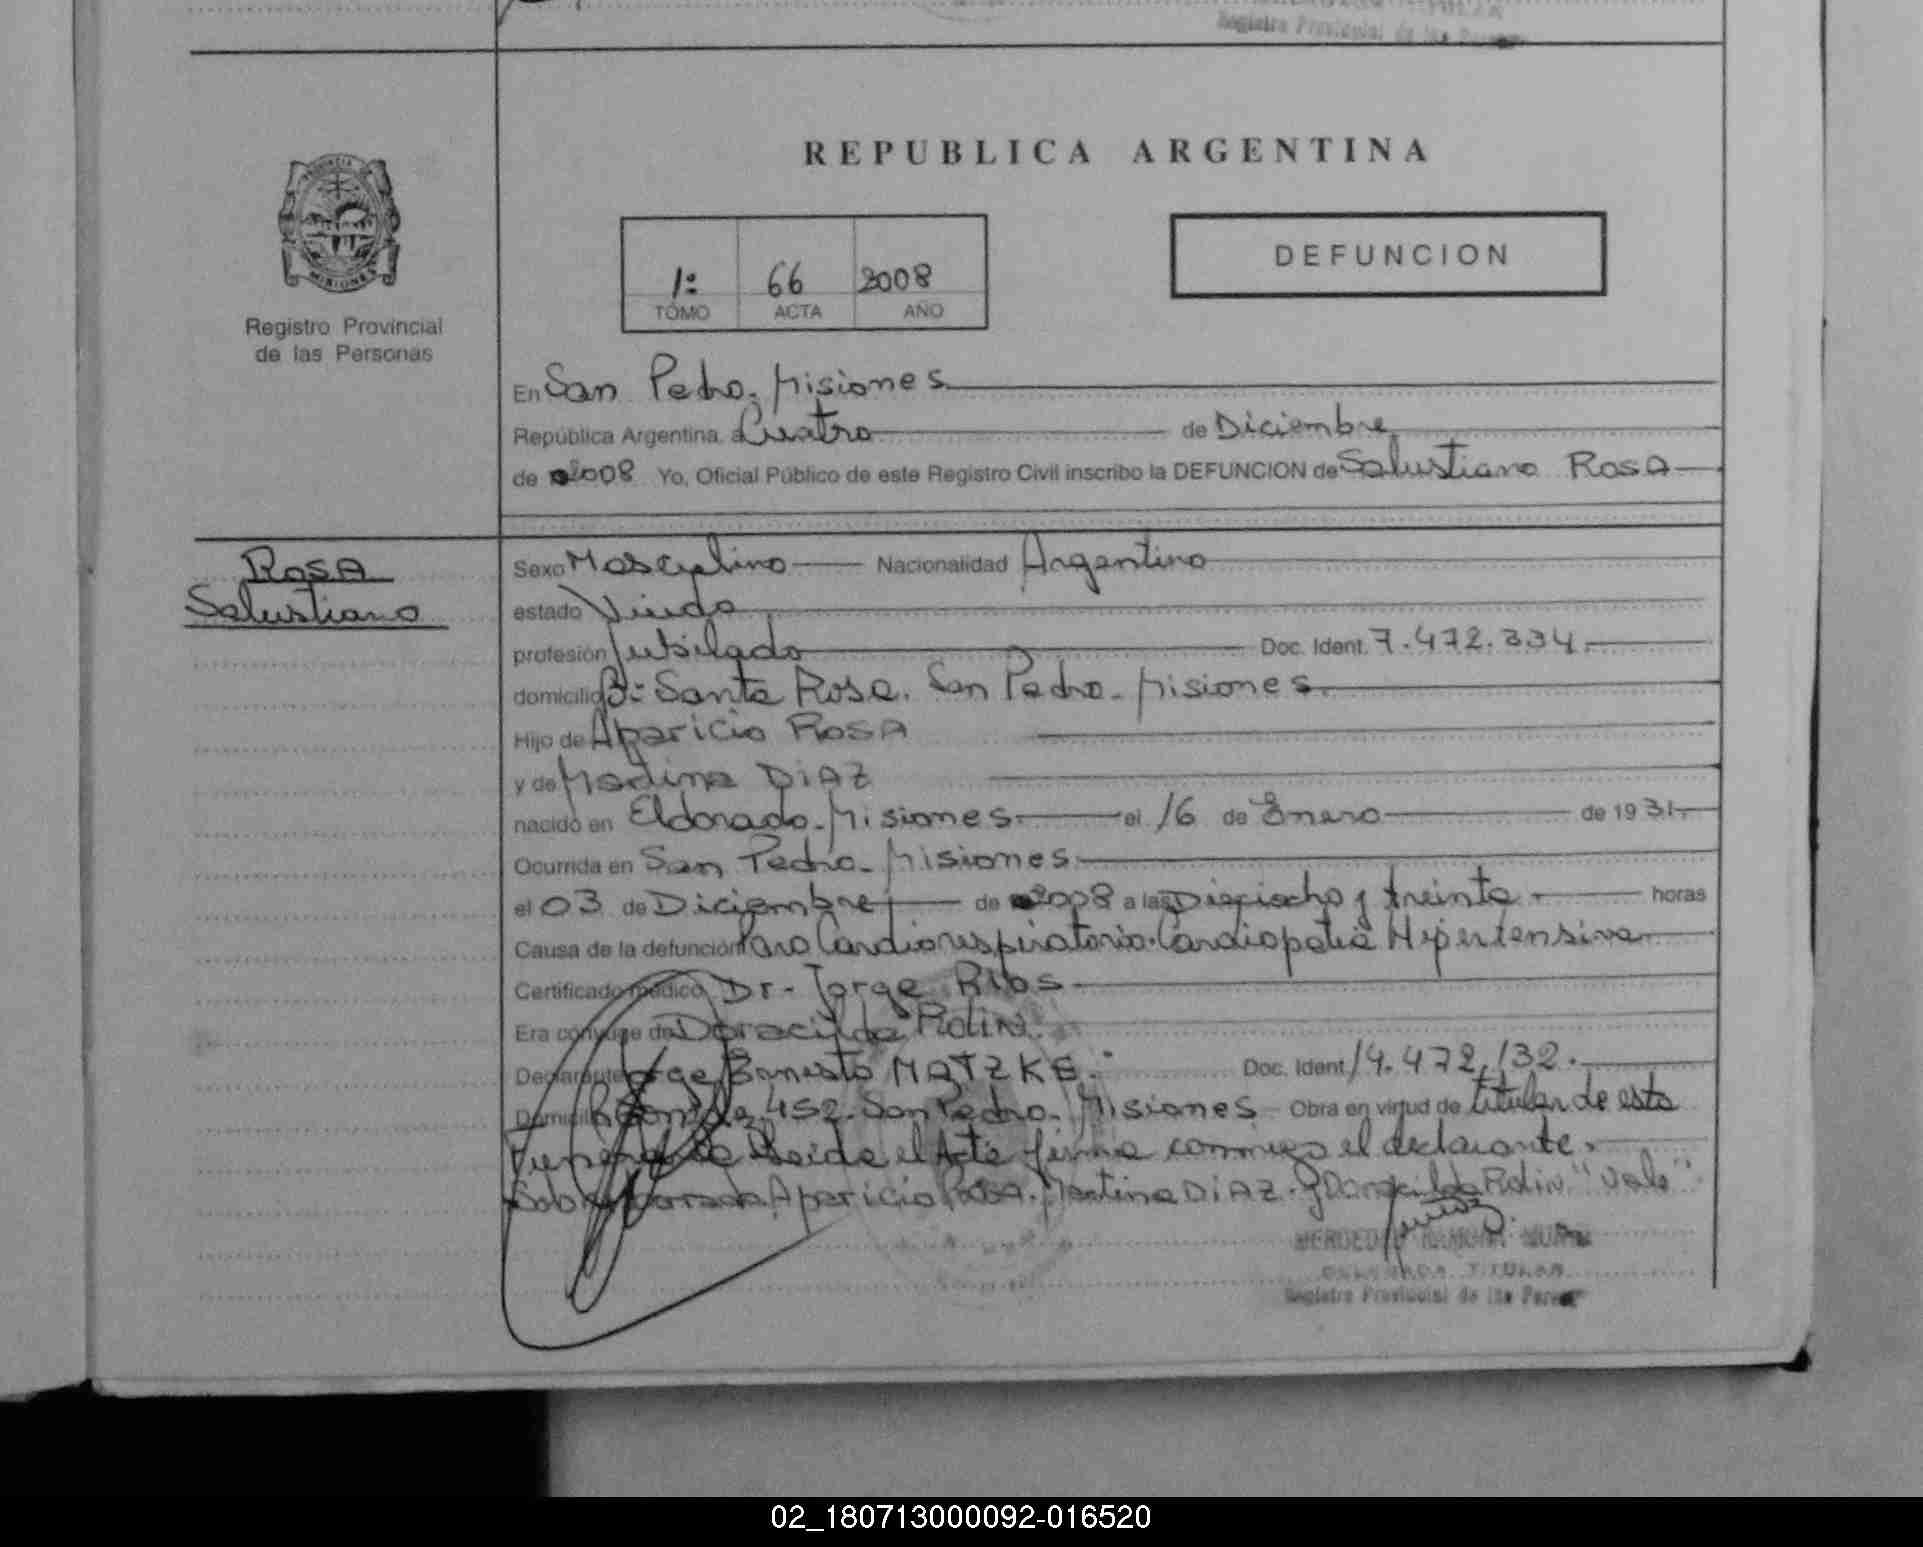 Registro Provincial de las Personas
REPUBLICA ARGENTINA
DEFUNCION
1º 66 2008
TOMO ACTA AÑO
PROVINCIA
MISIONES
Registro Provincial
de las Personas
En San Pedro. Misiones
República Argentina, a Cuatro de Diciembre
de 2008 Yo, Oficial Público de este Registro Civil inscribo la DEFUNCION de Salustiano ROSA
ROSA
Salustiano
Sexo Masculino Nacionalidad Argentino
estado Viudo
profesión Jubilado Doc. Ident. 7.472.334.
domicilio Bº Santa Rosa. San Pedro. Misiones.
Hijo de Aparicio ROSA
y de Martina DIAZ
nacido en Eldorado. Misiones el 16 de Enero de 1931.
Ocurrida en San Pedro. Misiones
el 03 de Diciembre de 2008 a las Dieciocho y treinta horas
Causa de la defunción Paro Cardiorespiratorio. Cardiopatia Hipertensiva
Certificado médico Dr. Jorge RIOS
Era cónyuge de Doracilda Rolin.
Declarante Jorge Ernesto MATZKE. Doc. Ident. 14.472.132.
Domicilio 452. San Pedro. Misiones Obra en virtud de titular de esta
Leida el Acta firma conmigo el declarante.
Sobre borrado. Aparicio ROSA. Martina DIAZ. y Doracilda Rolin. "Vale"
MERCEDES RAMONA
DELEGADA TITULAR
Registro Provincial de las Personas
02_180713000092-016520